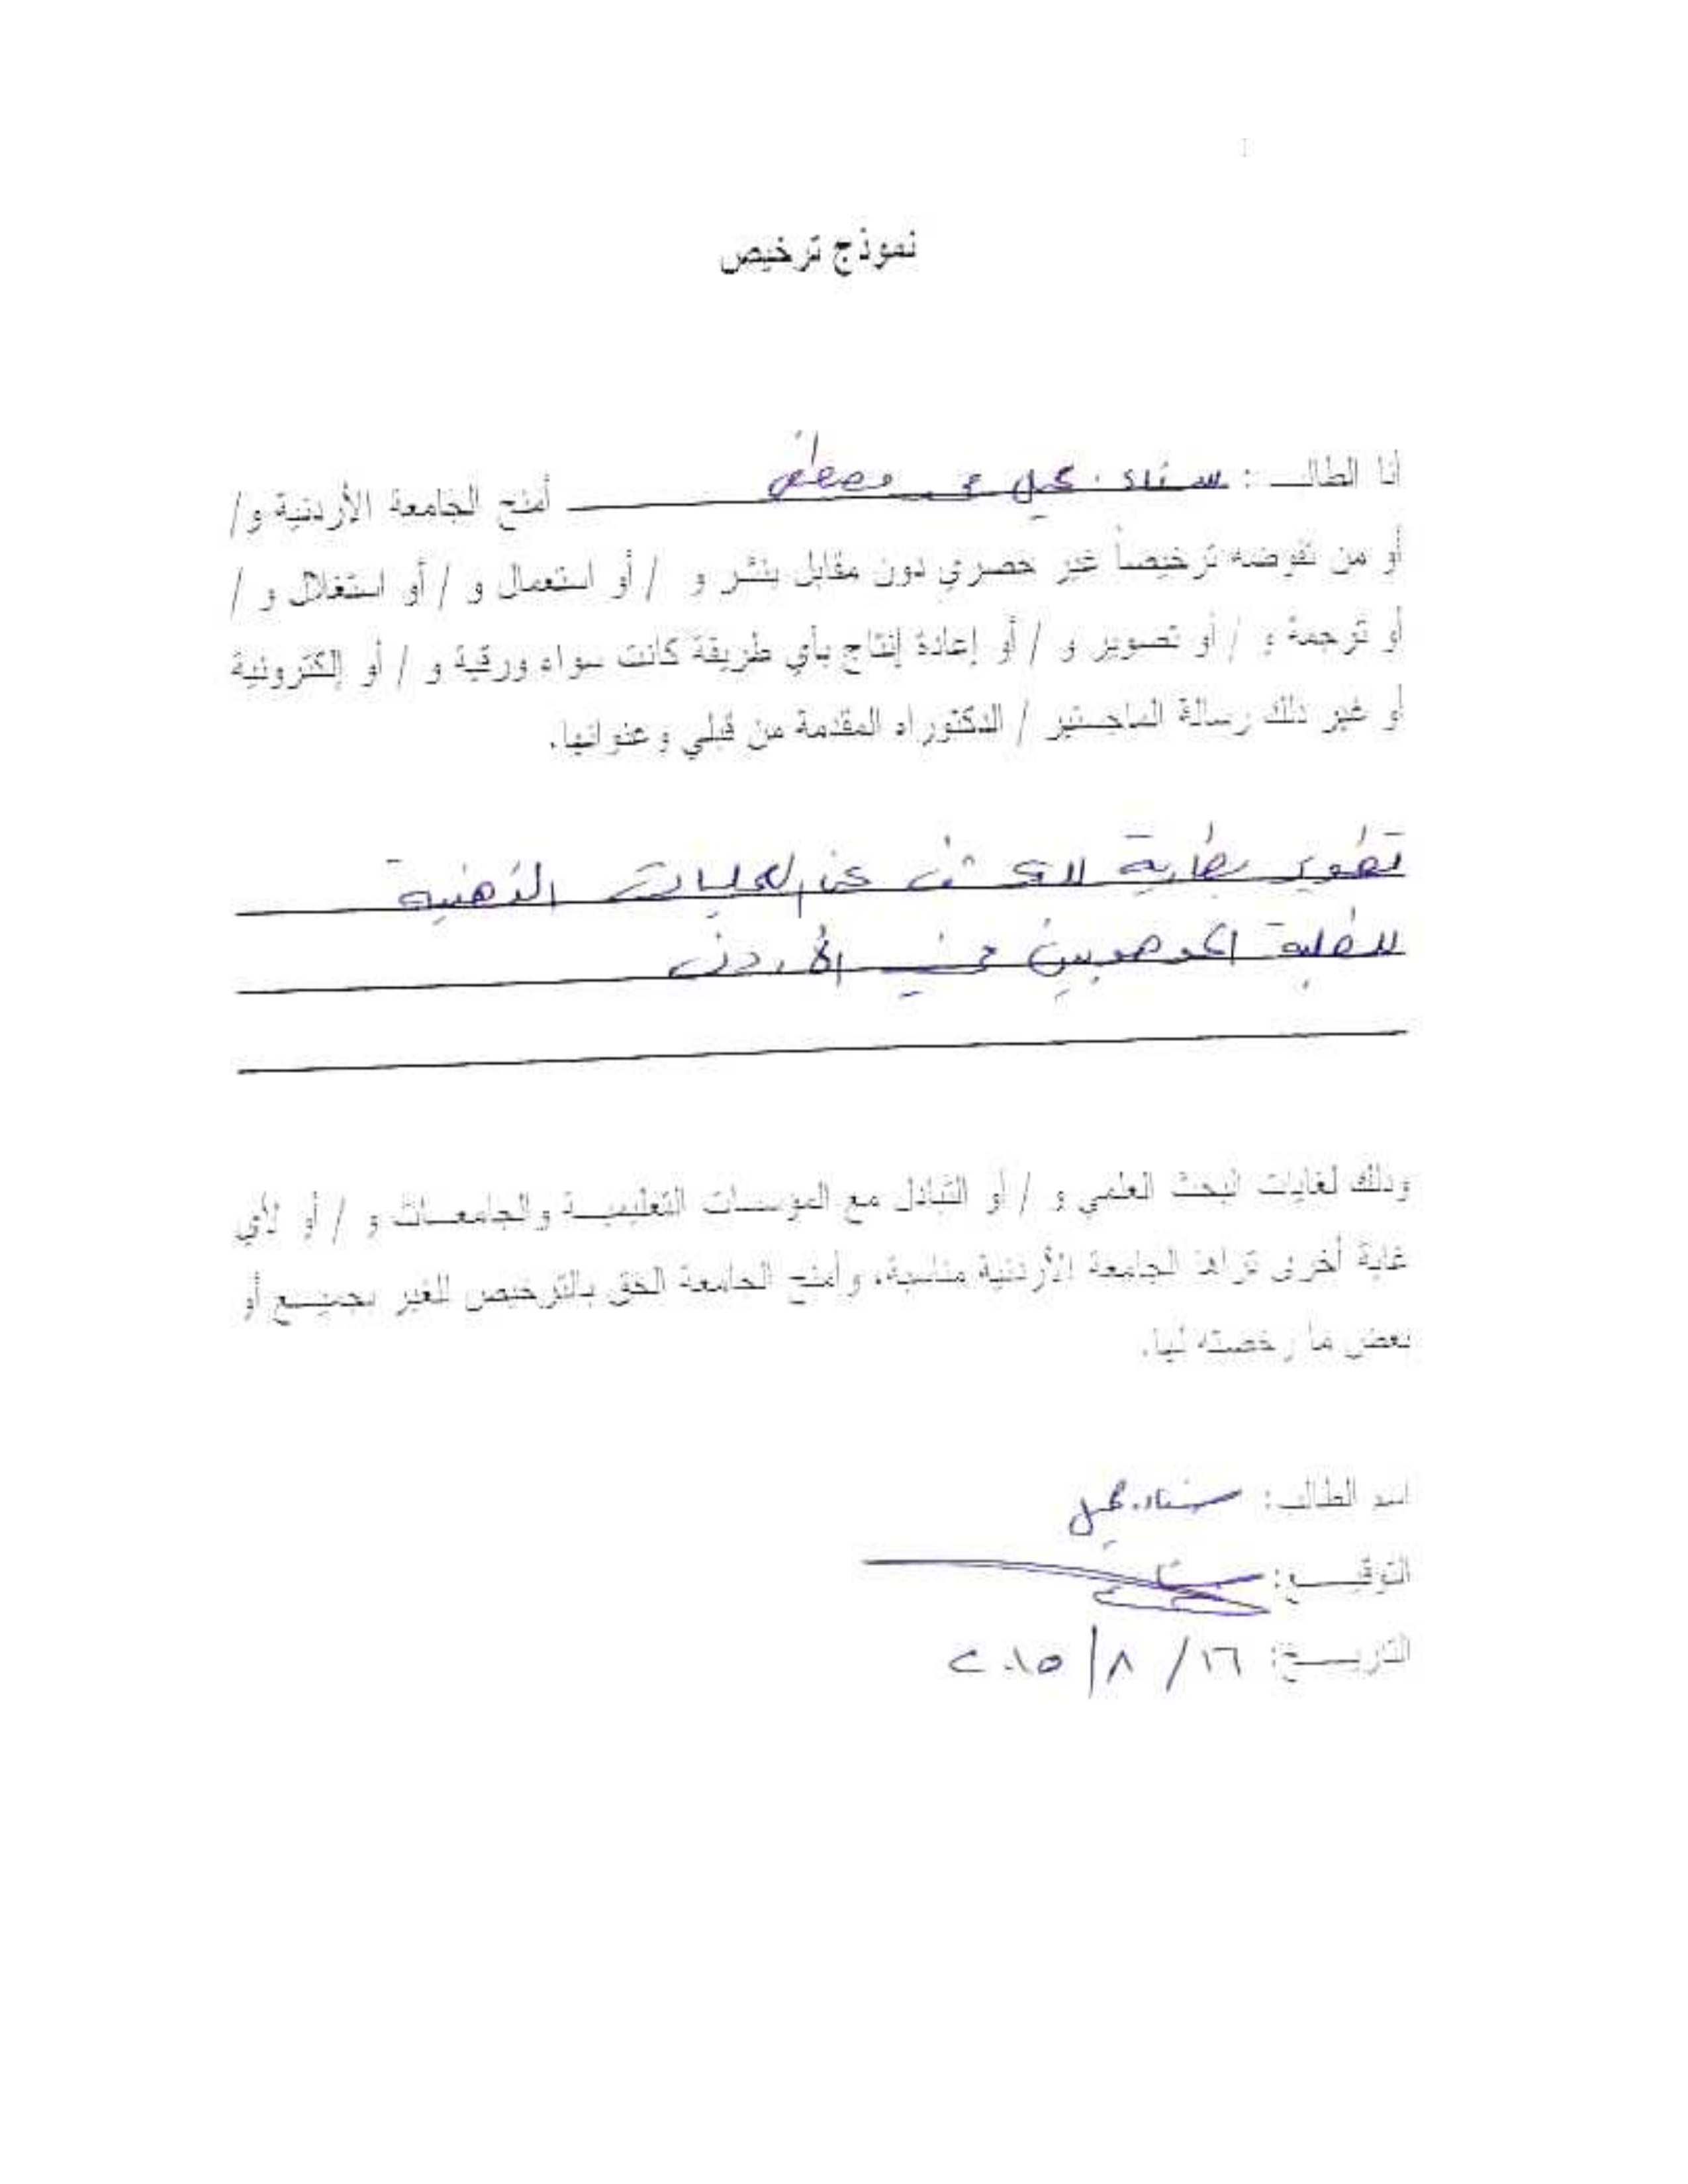 نموذج ترخيص
أنا الطالب : سناء جميل محمد مصطفى أمنح الجامعة الأردنية و/
أو من تفوضه ترخيصاً غير حصري دون مقابل بنشر و / أو استعمال و / أو استغلال و /
أو ترجمة و / أو تصوير و / أو إعادة إنتاج بأي طريقة كانت سواء ورقية و / أو إلكترونية
أو غير ذلك رسالة الماجستير / الدكتوراه المقدمة من قبلي وعنوانها.
تطوير بطارية للكشف عن العمليات الذهنية
للطلبة الموهوبين في الأردن
وذلك لغايات البحث العلمي و / أو التبادل مع المؤسسات التعليمية والجامعات و / أو لأي
غاية أخرى تراها الجامعة الأردنية مناسبة، وأمنح الجامعة الحق بالترخيص للغير بجميع أو
بعض ما رخصته لها.
اسم الطالب: سناء جميل
التوقيع:
التاريخ: ١٦/ ٨/ ٢٠١٥